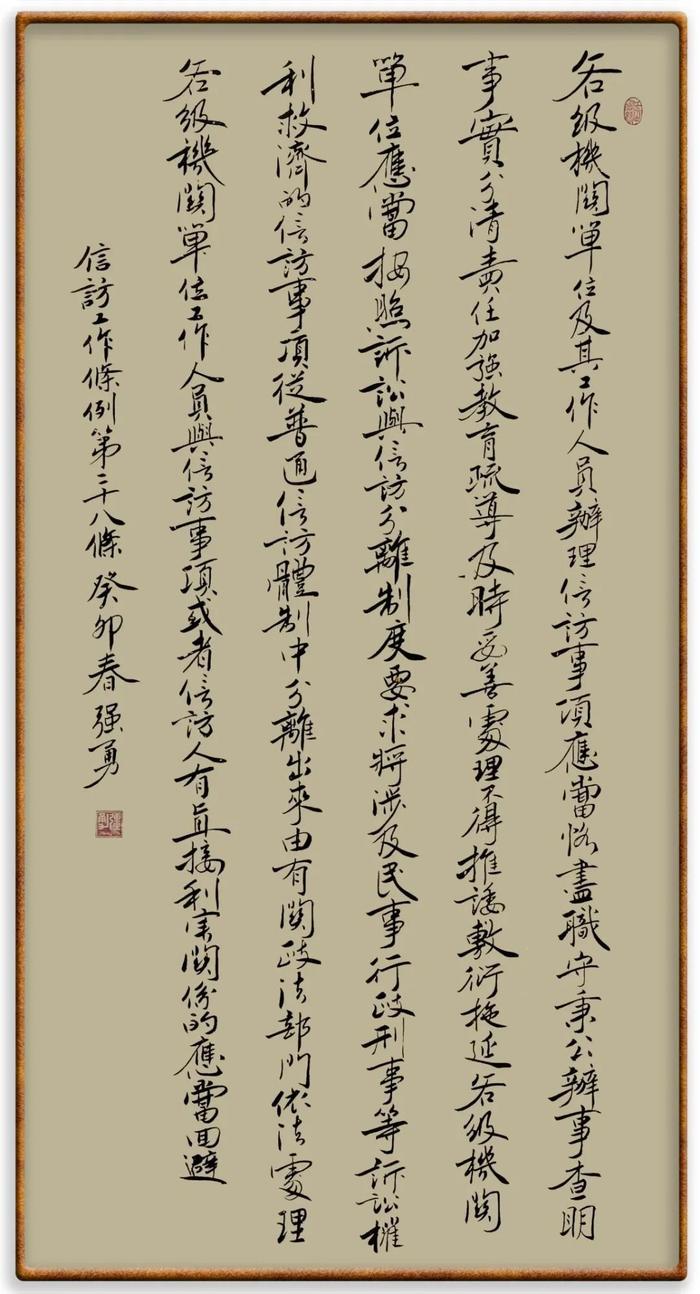 各級機關單位及其工作人員辦理信訪事項應當恪盡職守秉公辦事查明
事實分清責任加強教育疏導及時妥善處理不得推諉敷衍拖延各級機關
單位應當按照訴訟與信訪分離制度要求將涉及民事行政刑事等訴訟權
利救濟的信訪事項從普通信訪體制中分離出來由有關政法部門依法處理
各級機關單位工作人員與信訪事項或者信訪人有直接利害關係的應當回避
信訪工作條例第二十八條 癸卯春 強勇